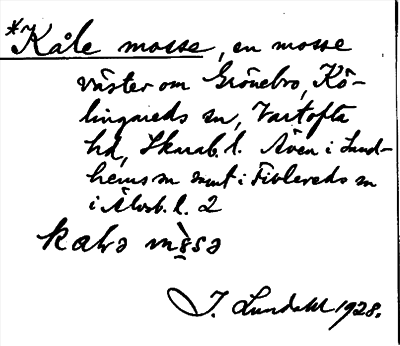 *Kåle mosse, en mosse
väster om Grönebro, Kö-
lingareds sn, Vartofta
hd, Skarab. l. Även i Sand-
hems sn samt i Fivlereds sn
i Älvsb. l. 2
kalə mosə
J. Lundahl 1928.